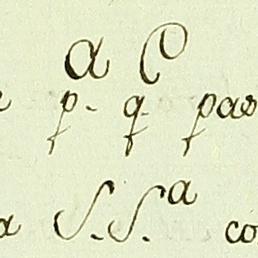 a C
p. q. pas
a S. S.ª co